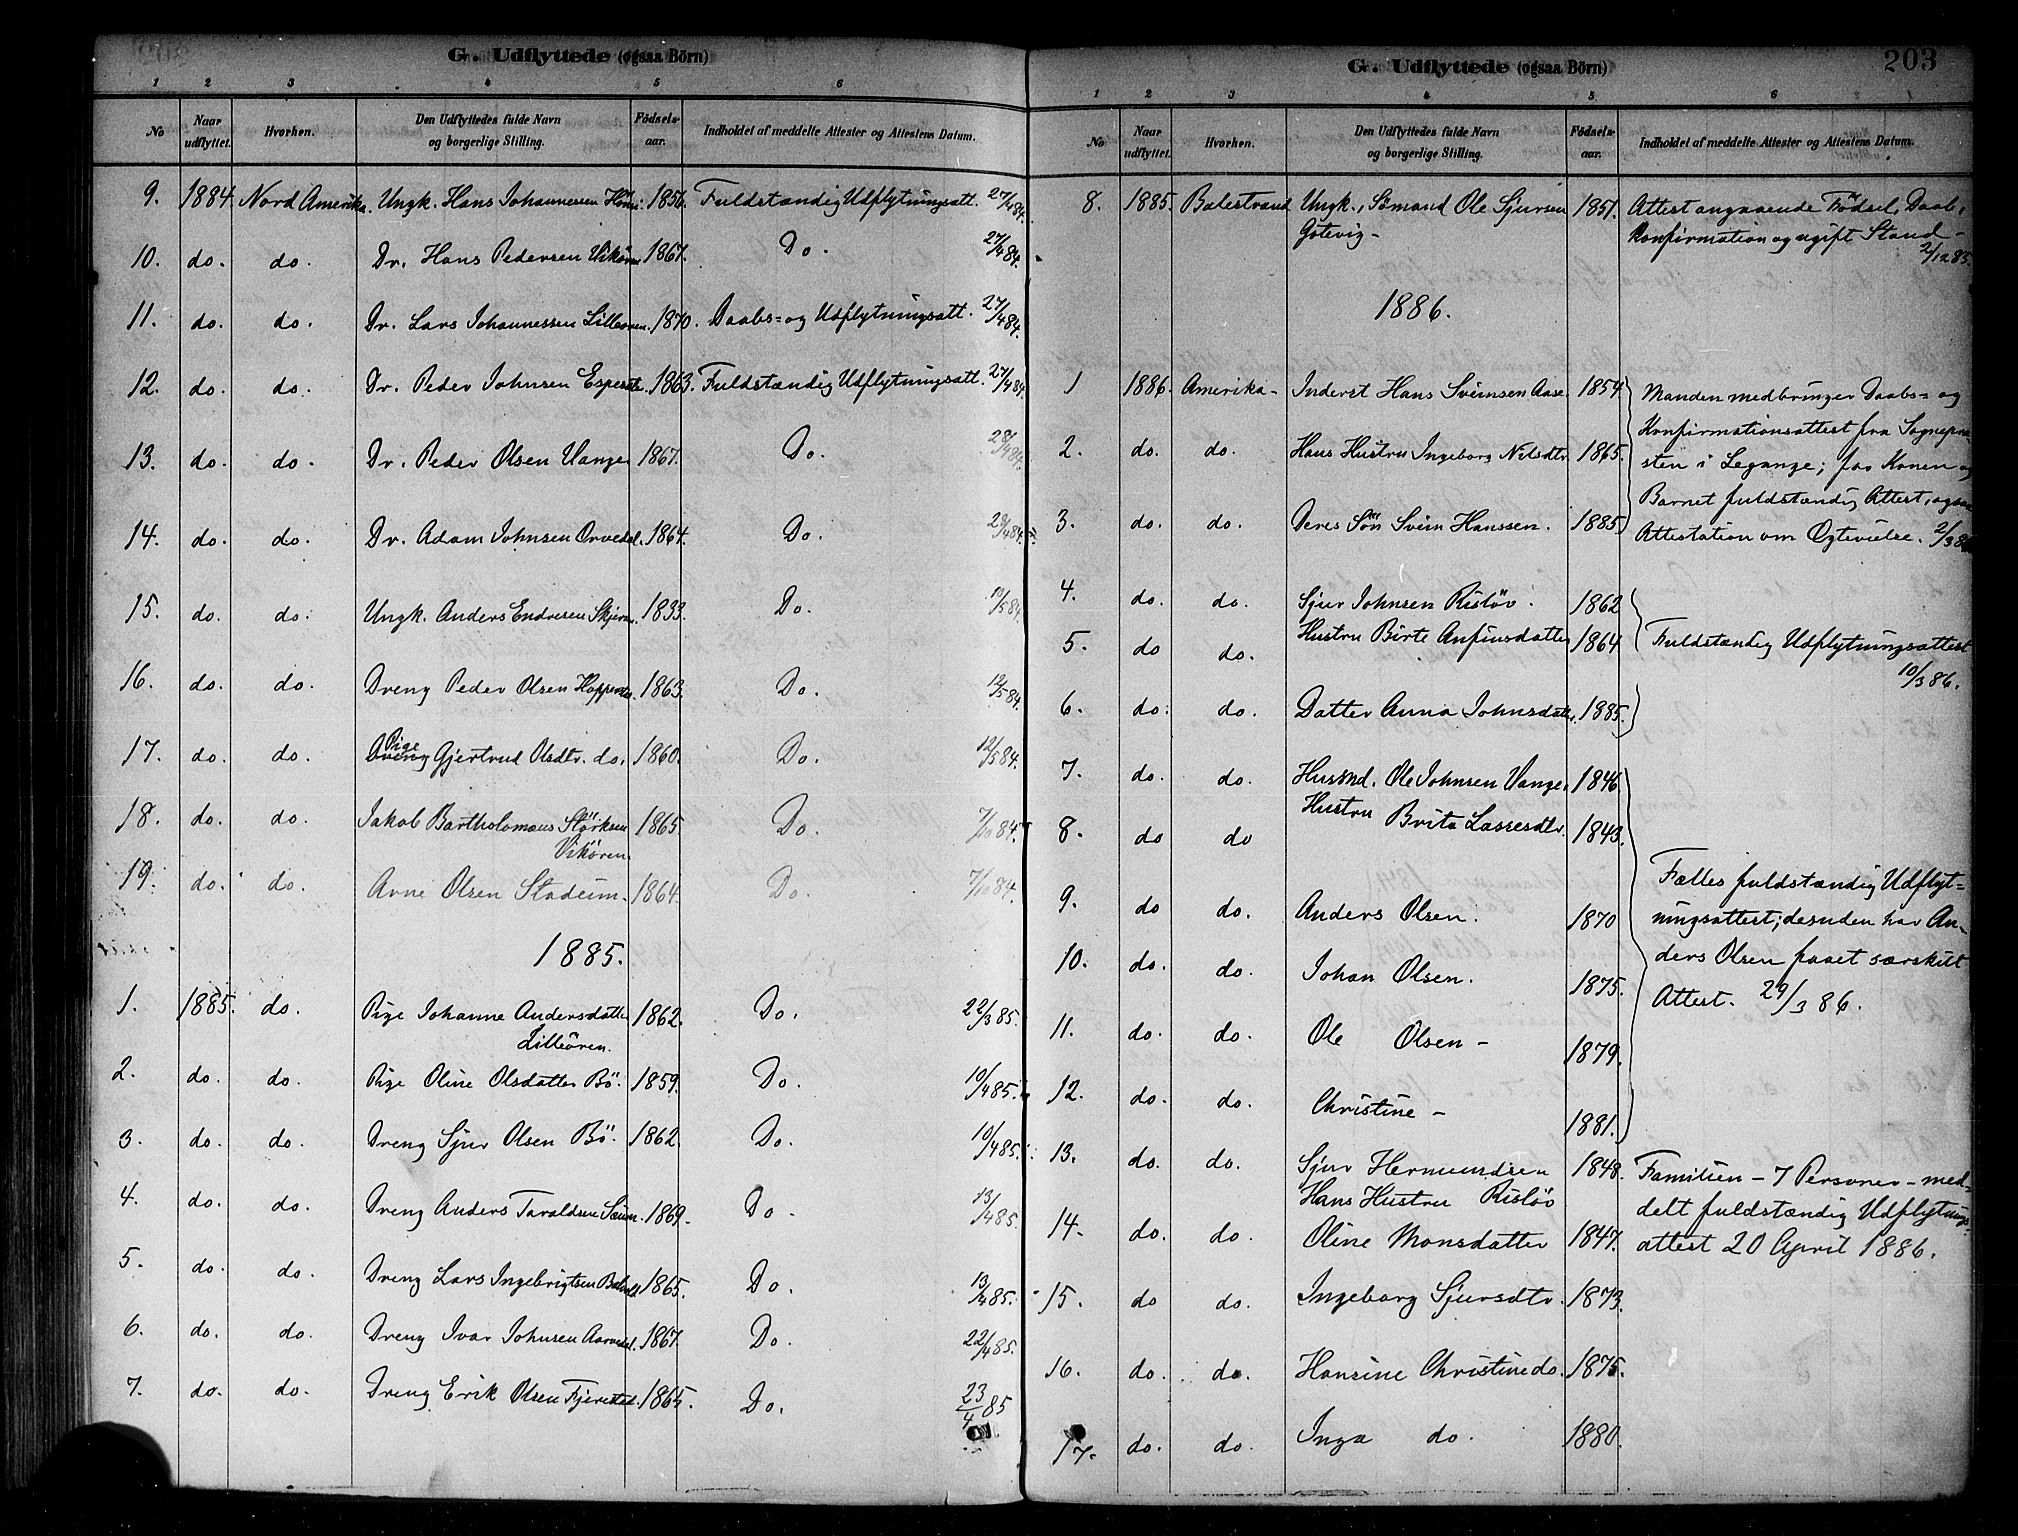 G. Udflyttede (ogsaa Börn)
1 2 3 4 5 6
No Naar udflyttet. Hvorhen. Den Udflyttedes fulde Navn og borgerlige Stilling. Fødsels-aar. Indholdet af meddelte Attester og Attestens Datum.
9. 1884. Nord Amerika. Ungk. Hans Johannessen 1856. Fuldstændig Udflytningsatt. 27/4 84.
10. do. do. Dr. Hans Pedersen Vikören 1867. Do. 27/4 84.
11. do. do. Dr. Lars Johannessen Lilleören. 1870. Daabs= og Udflytningsatt. 27/4 84.
12. do. do. Dr. Peder Johnsen 1863. Fuldstændig Udflytningsatt. 27/4 84.
13. do. do. Dr. Peder Olsen Vange 1867. Do. 28/4 84.
14. do. do. Dr. Adam Johnsen Orvedal. 1864. Do. 29/4 84.
15. do. do. Ungk. Anders Endresen 1833. Do. 10/5 84.
16. do. do. Dreng Peder Olsen 1863. Do. 12/5 84.
17. do. do. Pige Gjertrud Olsdtr. do. 1860. Do. 12/5 84.
18. do. do. Jakob Bartholomæus Störksen 1865. Do. 7/10 84.
Vikören.
19. do. do. Arne Olsen Stadeim. 1864. Do. 7/10 84.
1885.
1. 1885. do. Pige Johanne Andersdatter 1862. Do. 22/3 85.
Lilleören.
2. do. do. Pige Oline Olsdatter Bö. 1859. Do. 10/4 85.
3. do. do. Dreng Sjur Olsen Bö. 1862. Do. 10/4 85.
4. do. do. Dreng Anders Taraldsen 1869. Do. 13/4 85.
5. do. do. Dreng Lars Ingebrigtsen 1865. Do. 13/4 85.
6. do. do. Dreng Ivar Johnsen Aarvedal. 1867. Do. 22/4 85.
7. do. do. Dreng Erik Olsen Fjærestad. 1865. Do. 23/4 85
G. Udflyttede (ogsaa Börn) 203
1 2 3 4 5 6
No Naar udflyttet. Hvorhen. Den Udflyttedes fulde Navn og borgerlige Stilling. Fødsels-aar. Indholdet af meddelte Attester og Attestens Datum.
8. 1885. Balestrand Ungk., Sömand Ole Sjursen 1851. Attest angaaende Födsel, Daab,
Götevig - Konfirmation og ugift Stand -
2/12 85.
1886.
1 1886. Amerika - Inderst Hans Sveinsen Aase. 1854. Manden medbringer Daabs= og
Konfirmationsattest fra Sognepræ-
2. do. do. Hans Hustru Ingeborg Nilsdtr. 1865. sten i Leganger; for Konen og
Barnet fuldstændig Attest, ogsaa
3. do. do. Deres Sön Svein Hanssen. 1885 Attestation om Ægtevielse. 2/3 86
4. do. do. Sjur Johnsen Risløv. 1862
5. do do. Hustru Birte Anfinsdatter 1864 Fuldstændig Udflytningsattest
10/3 86.
6. do. do. Datter Anna Johnsdatter. 1885.
7. do. do. Husmd. Ole Johnsen Vange. 1846
8. do do Hustru Brita Lassesdtr. 1843.
Fælles fuldstændig Udflyt=
9. do do. Anders Olsen. 1870 ningsattest; desuden har An-
10. do. do. Johan Olsen. 1875. ders Olsen faaet særskilt
Attest. 29/3 86.
11. do. do. Ole Olsen - 1879.
12. do. do. Christine - 1881.
13. do. do. Sjur Hermundsen 1848. Familien - 7 Personer - med=
Hans Hustru Risløv delt fuldstændig Udflytnings
14. do. do. Oline Monsdatter 1847. attest 20 April 1886.
15. do do. Ingeborg Sjursdtr. 1873.
16. do. do. Hansine Christine do. 1875.
17. do. do. Inga do. 1880.